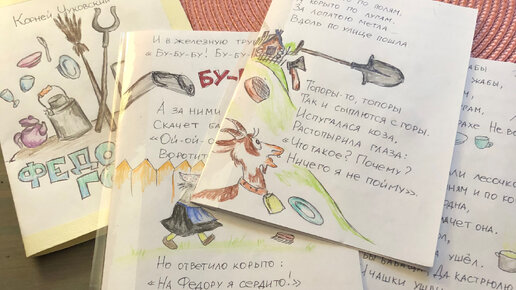 Корней Чуковский
ФЕДО
ГО
И в железную тру
«Бу-Бу-Бу! Бу-
БУ-
А за ними
Скачет ба
«Ой-ой-о
Воротит
Но ответило корыто:
«На Федору я сердито!»
по полям,
корыто по лугам.
За лопатою метла
Вдоль по улице пошла
Топоры-то, топоры
Так и сыплются с горы.
Испугалася коза,
Растопырила глаза:
«Что такое? Почему?
Ничего я не пойму».
жабы,
Не во
лесочк
ням и по ко
дна,
ачет она.
ушёл.
Да кастрюлю
чашки ушли